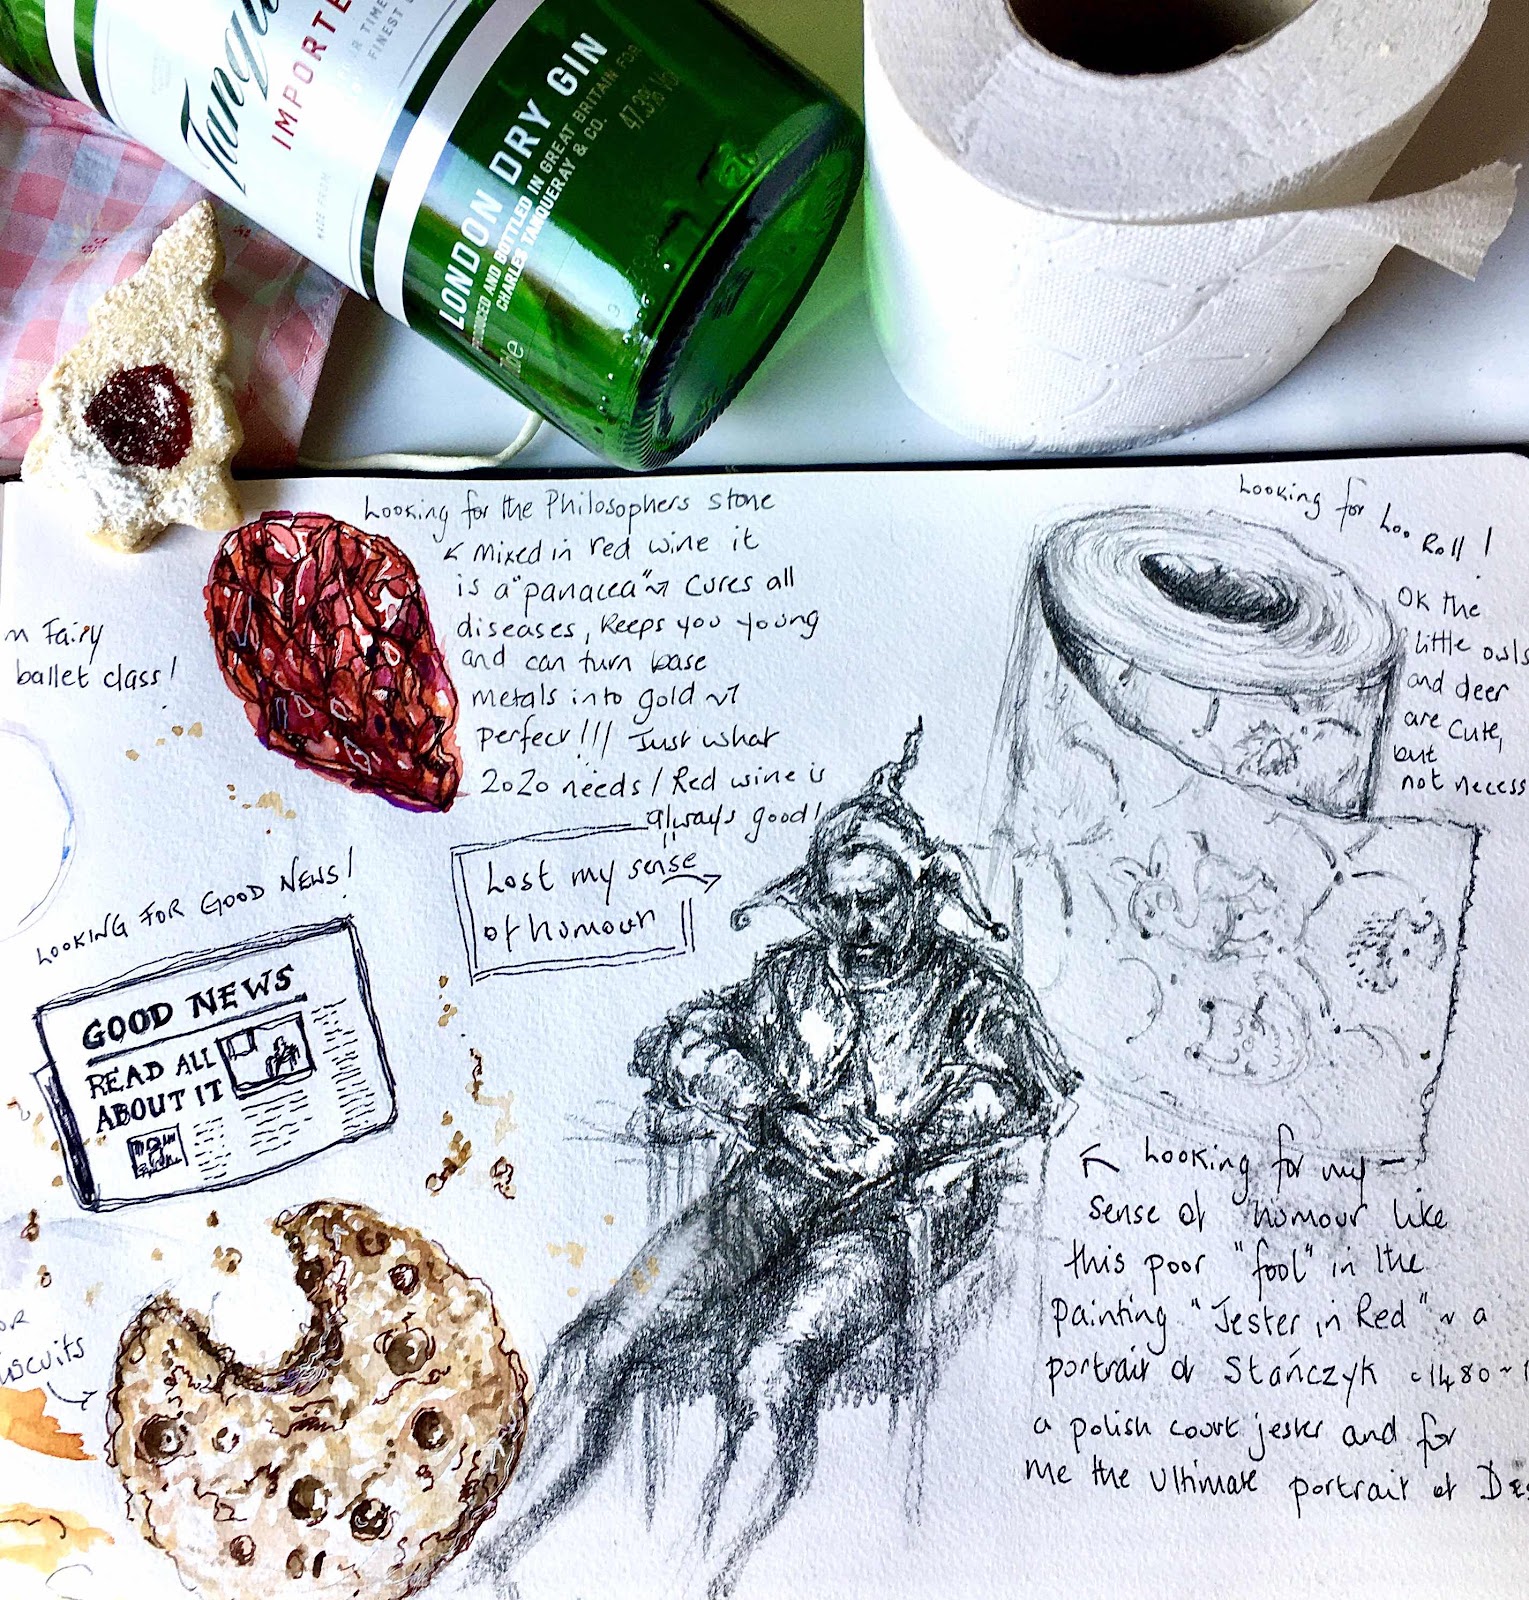 IMPORTE
LONDON DRY GIN
PRODUCED AND BOTTLED IN GREAT BRITAIN FOR
CHARLES TANQUERAY & CO.
47.3% Vol
Looking for the Philosophers stone
mixed in red wine it
is a "panacea" ~ cures all
diseases, keeps you young
and can turn base
metals into gold ~
perfect!!! Just what
2020 needs! Red wine is
always good!
Looking for Loo Roll!
OK the
little owls
and deer
are cute,
but
not necess
Fairy
ballet class!
Lost my sense
of humour!!
LOOKING FOR GOOD NEWS!
GOOD NEWS
READ ALL
ABOUT IT
Looking for my
sense of humour like
this poor "fool" in the
painting "Jester in Red" ~ a
portrait of Stańczyk c1480~1
a polish court jester and for
me the ultimate portrait of Des